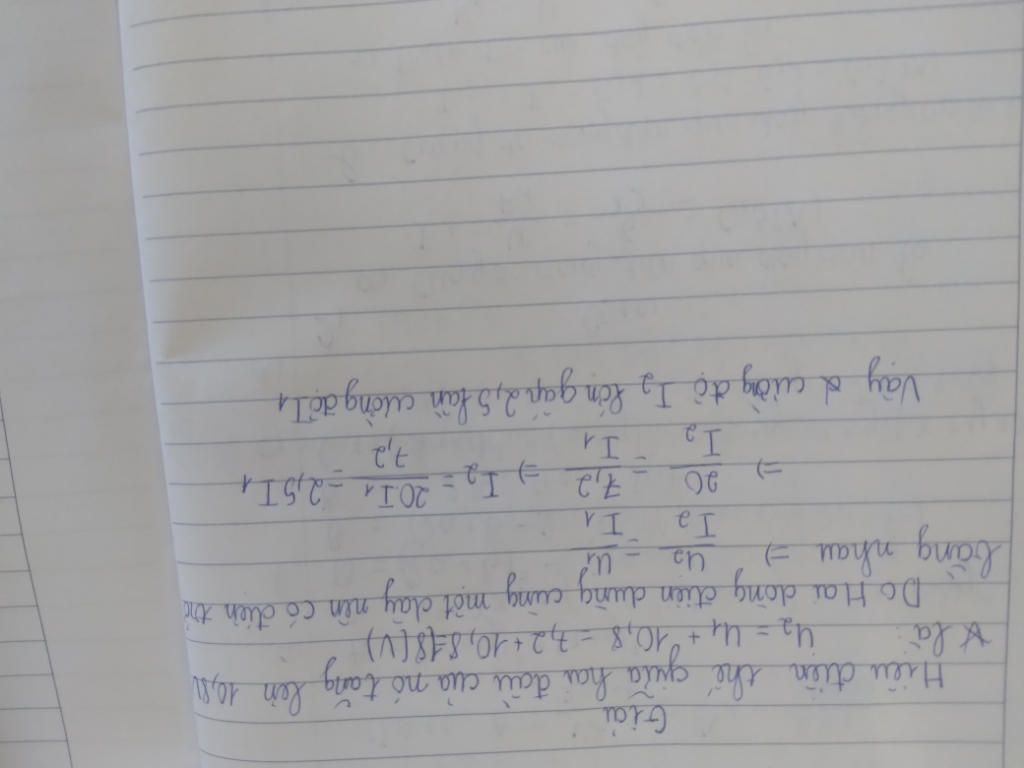 Giải
Hiệu điện thế giữa hai đầu của nó tăng lên 10,8V
là: U2 = U1 + 10,8 = 7,2 + 10,8 = 18 (V)
Do Hai dòng điện dùng cùng một dây nên có điện trở
bằng nhau ⇒ U2/I2 = U1/I1
⇒ 20/I2 = 7,2/I1 ⇒ I2 = 20I1/7,2 = 2,5I1
Vậy cường độ I2 lớn gấp 2,5 lần cường độ I1